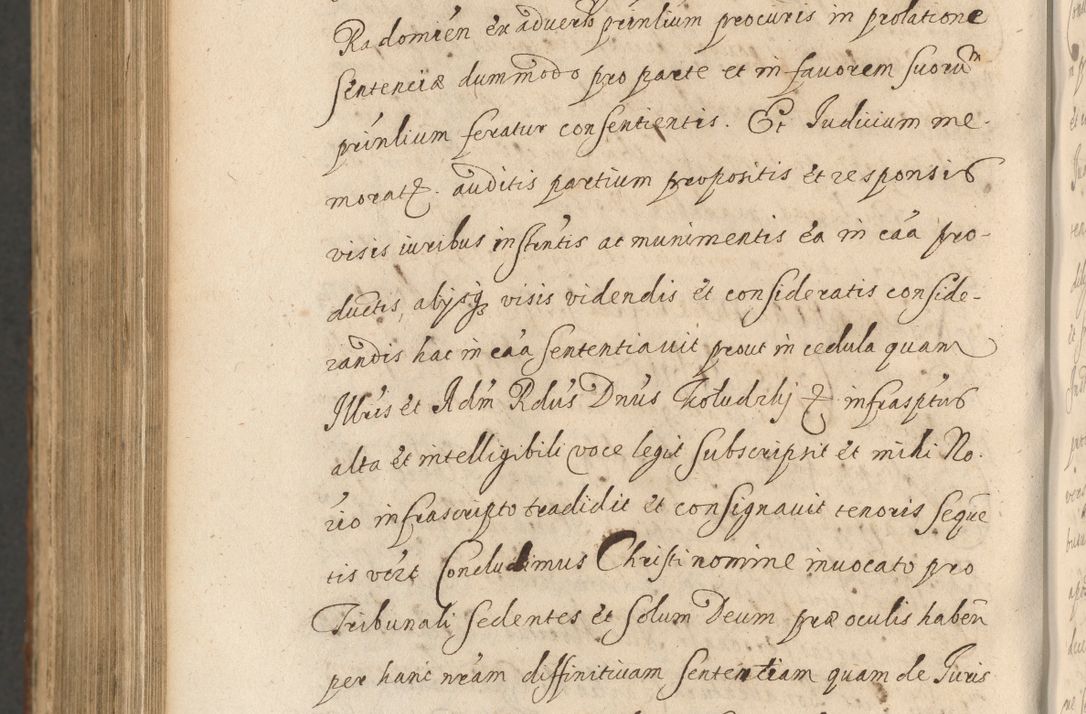 Radomien ex adverso prinlium procuris in prolatione
sentenciæ dummodo pro parte et in favorem suorum
prinlium feratur consentientis. Et Iudicium me-
morat. auditis partium propositis et responsis
visis iuribus instntis ac munimentis ea in caa pro-
ductis, abijsq visis videndis et consideratis conside-
randis hac in caa sententiavit prout in cedula quam
Illris et Adm Rdus Dnus infrasptus
alta et intelligibili voce legit subscripsit et mihi No-
rio infrascripto tradidit et consignavit tenoris seque
tis vert Concludimus Christi nomine invocato pro
Tribunali sedentes et solum Deum præ oculis haben
per hanc nram diffinitivam sententiam quam de Iuris